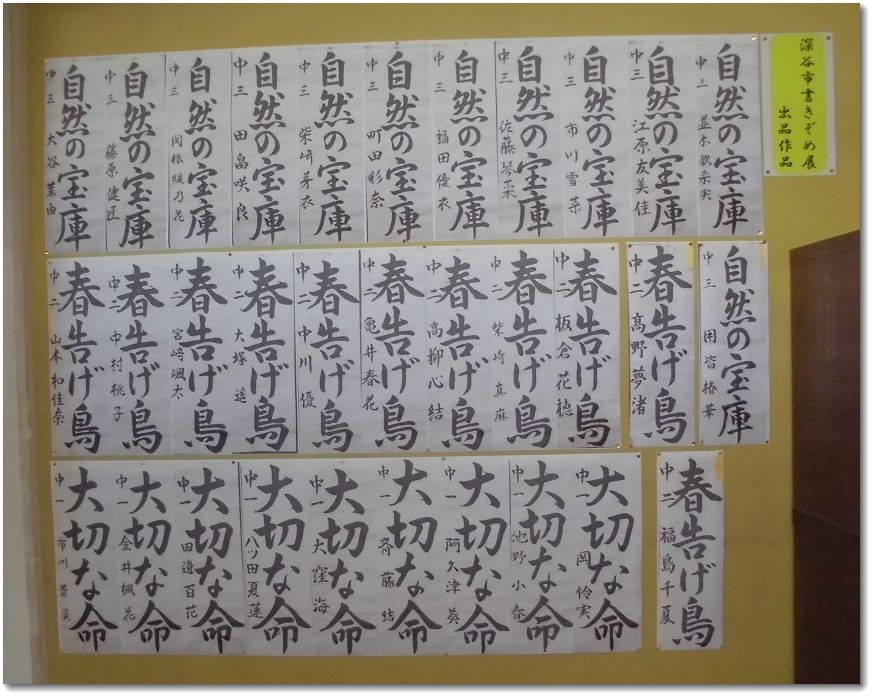 深谷市書きぞめ展
出品作品
自然の宝庫
中三
自然の宝庫
中三 江原友美佳
自然の宝庫
中三 市川雪菜
自然の宝庫
中三 佐藤琴菜
自然の宝庫
中三 福田優衣
自然の宝庫
中三 町田彩奈
自然の宝庫
中三 柴崎芽衣
自然の宝庫
中三 田畠咲良
自然の宝庫
中三
自然の宝庫
中三 藤原健匠
自然の宝庫
中三 大谷茉由
自然の宝庫
中三
春告げ鳥
中二 髙野夢渚
春告げ鳥
中二 板倉花穂
春告げ鳥
中二 柴崎真麻
春告げ鳥
中二 高柳心結
春告げ鳥
中二 亀井春花
春告げ鳥
中二 中川優
春告げ鳥
中二 大塚遥
春告げ鳥
中二 宮﨑颯太
春告げ鳥
中二 中村桃子
春告げ鳥
中二 山本和佳奈
春告げ鳥
中二 福島千夏
大切な命
中一 岡怜実
大切な命
中一 池野小春
大切な命
中一 阿久津葵
大切な命
中一 斉藤結
大切な命
中一 大窪海
大切な命
中一 八ツ田夏蓮
大切な命
中一 田邉百花
大切な命
中一 金井楓花
大切な命
中一 市川